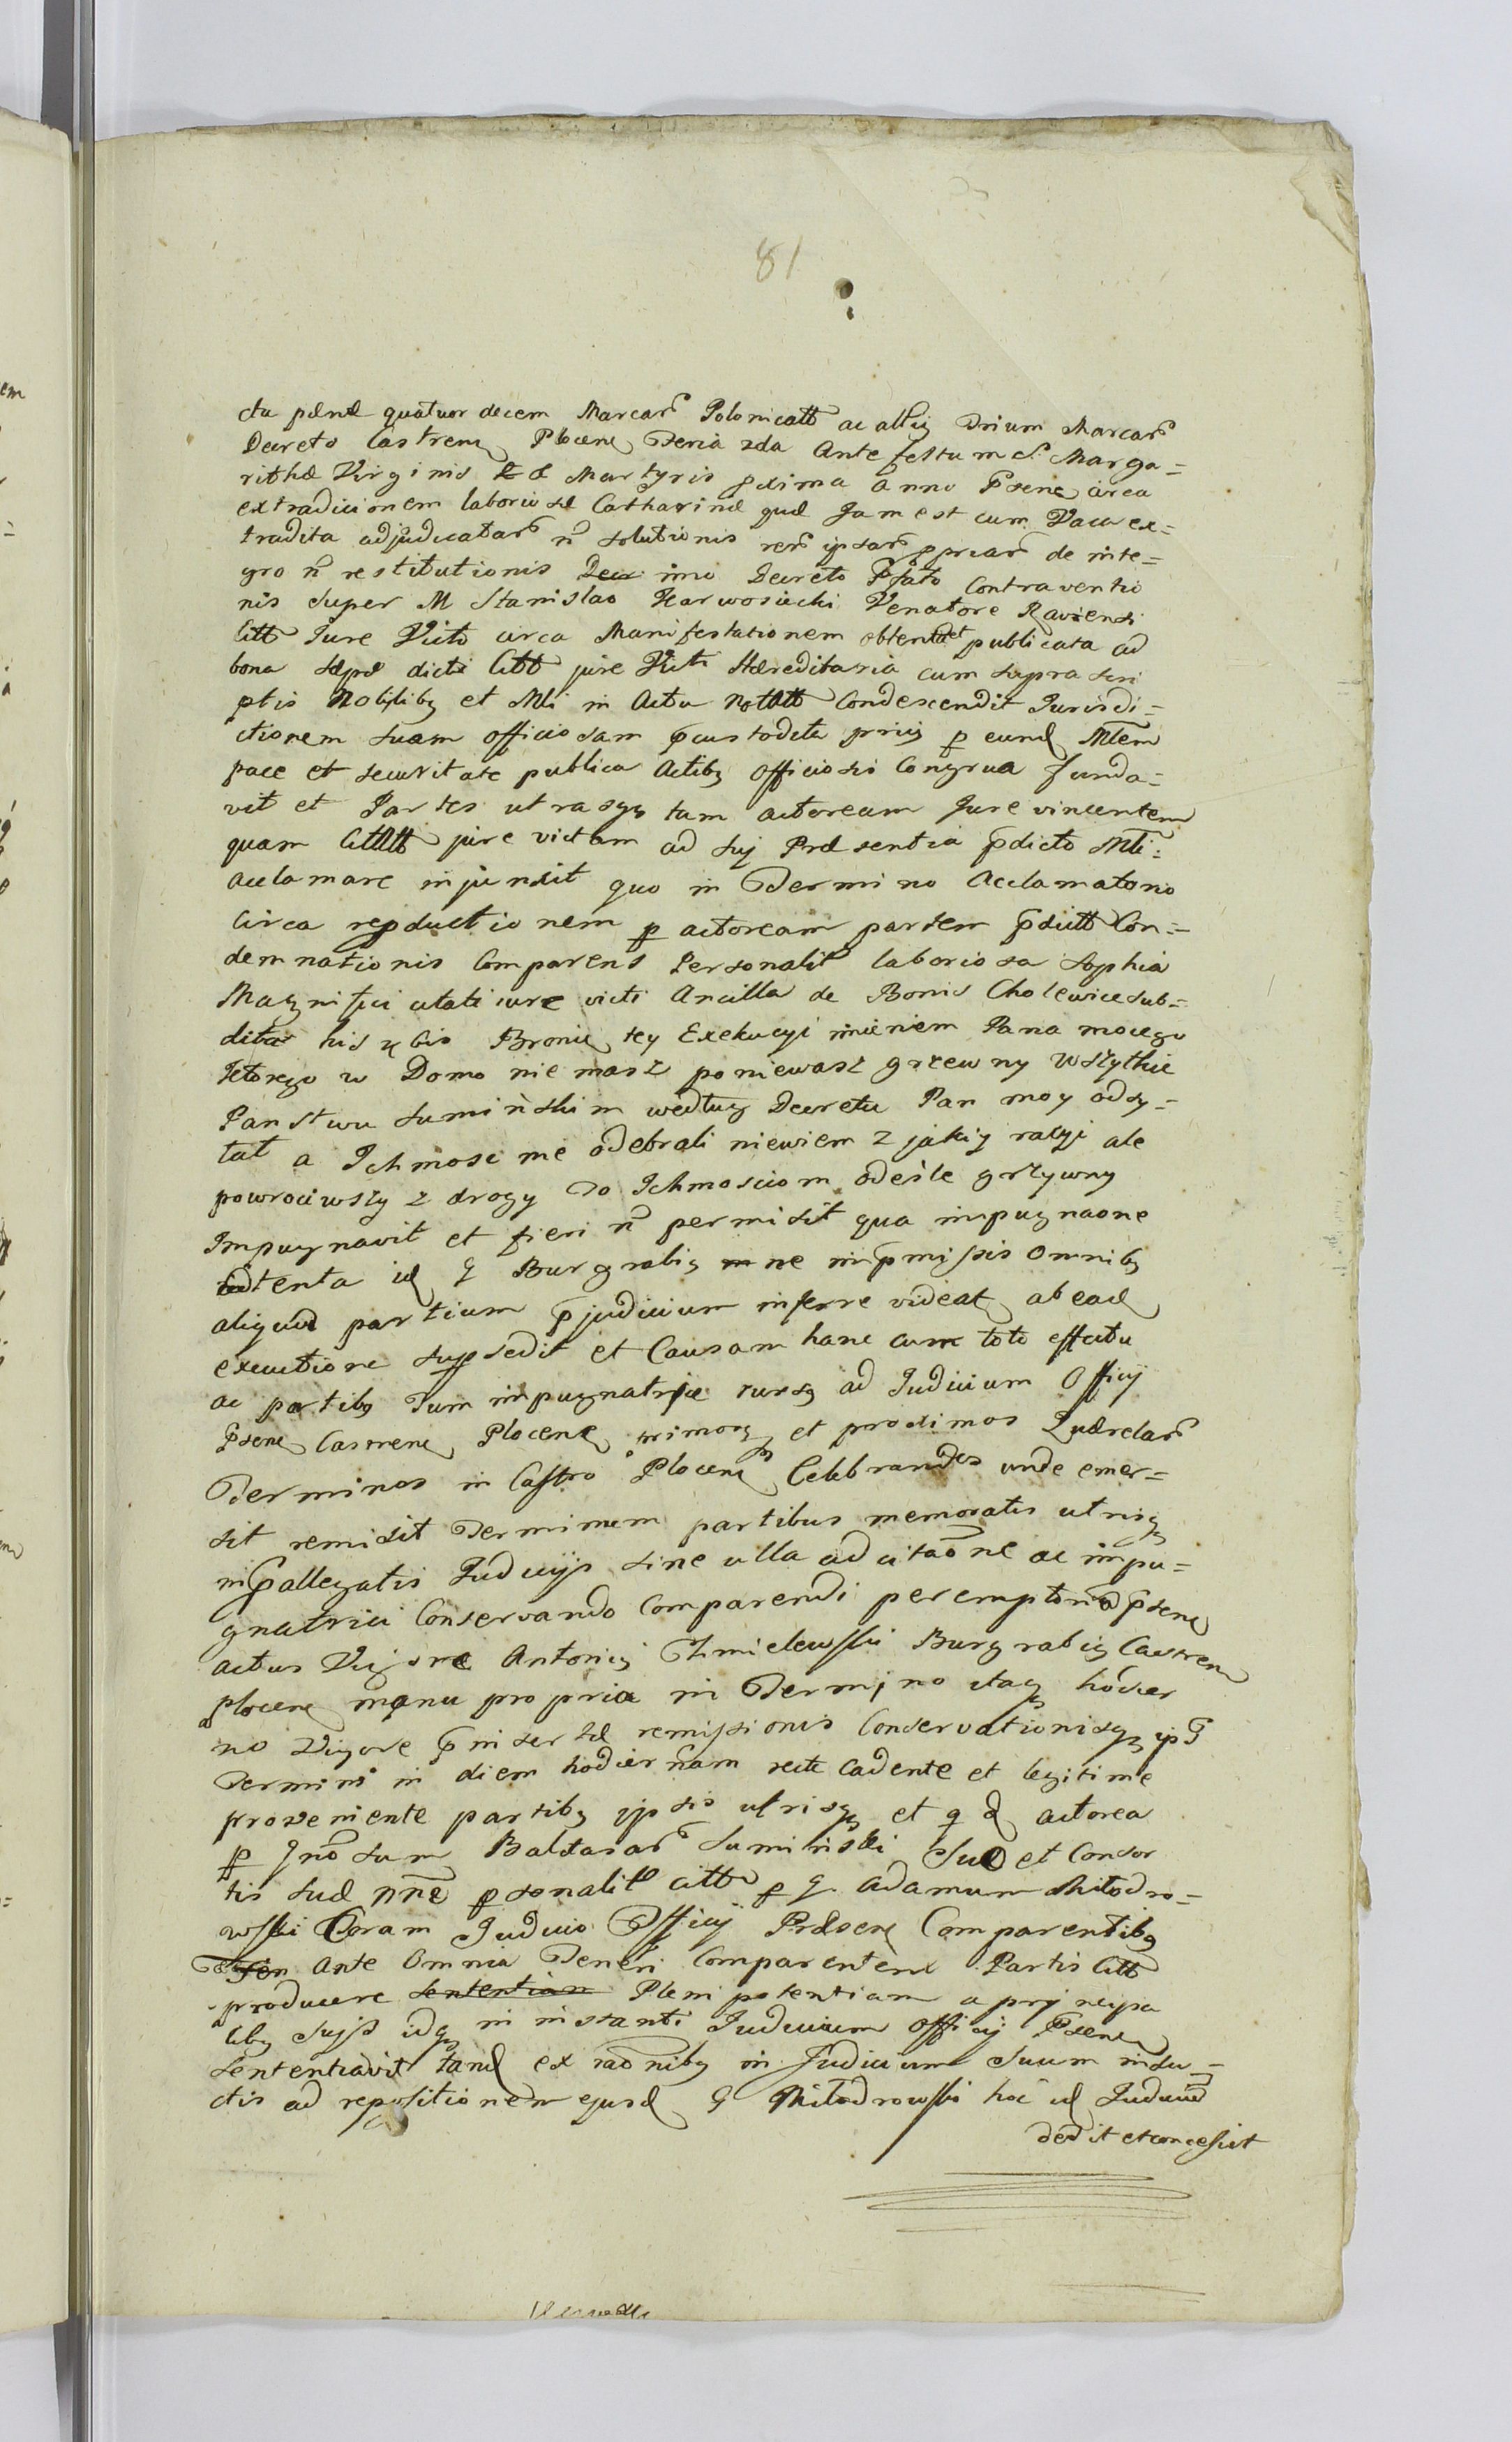 81
cta pænæ quatuor decem Marcar Polonicall ac alljs Trium Marcar
Decreto Castren Plocen Feria 2da Ante festum S. Marga=
rithæ Virginis & Martyris pxima Anno Psenc circa
extradicionem laboriosæ Catharinæ quæ Jam est cum Vacu ex=
tradita adjudicatar n solutionis rer ipsar ppriar de inte=
gro n restitutionis imo Decreto Pfato Contraventio
nis super M Stanislao Karwosiecki Venatore Raviensi
Citt Jure Victo circa Manifestationem obtend et publicata ad
bona sæpe dicti Citt jure Victi Hæreditaria cum supra scri
ptis Nobilibq et Mli in Actu Notatt Condescendit Jurisdi=
ctionem suam officiosam pcustodita prijs p eund Mtem
pace et securitate publica Actibq officiosis Congrua funda=
vit et Partes utrasqz tam actoream Jure vincentem
quam Citatt jure victam ad suj Præsentia pdicto Mli=
acclamare injunxit quo in Termino Acclamatorio
Circa repductionem p actoream partem pdictt Con=
demnationis Comparens Personalit laboriosa Sophia
Magnifici citati iure victi Ancilla de Bonis Cholewice sub=
dita his vbis Bronie tey Exekucyi imieniem Pana moiego
Ktorego w Domo niemasz poniewasz grzewny wszytkie
Panstwu Suminskim według Decretu Pan moy odsy=
łał a Ichmosc nie odebrali niewiem z jakiy racyi ale
powrociwszy z drogy do Ichmosciom odesle grzywny
Impugnavit et fieri n permisit qua impugnaone
attenta id G Burgrabiq ne in pmissis omnibq
aliquid partium pjudicium inferre videat ab ead
executione supsedit et Causam hanc cum toto effectu
ac partibq Tum impugnatrice rursq ad Judicium Officij
Psenc Castrenc Plocenc primos et proximos Quærelar
Terminos in Castro Plocenc Celebrandos unde emer=
sit remisit Terminum partibus memoratis utrisq
in pallegatis Judicijs sine ulla adcitaone ac impu=
gnatrici Conservando Comparendi peremptorie psenc
actus Vigore Antonij Chmielewski Burgrabiq Castren
Plocenc manu propria in Termino itaq hodier
no Vigore pinsertæ remissionis Conservationisqz ips
Termini in diem hodiernam recte cadente et legitime
proveniente partibq ipsis utrisqz et q d actorea
p Gnosum Baltazar Suminski Suo et Consor
tis suæ nne psonalit citt p G. Adamum Miłodro=
wski Coram Judicio Officij Præsenc Comparentibq
ante Omnia Teneri Comparentem Partis Citt
producere Sententiam Plenipotentiam a princypa
libq suijs idqz in instanti Judicium officij Psenc
Sententiavit tand ex raonibq in Judicium suum indu=
ctis ad repositionem ejusd G Miłodrowski hoc id Judicium
dedit et concessit